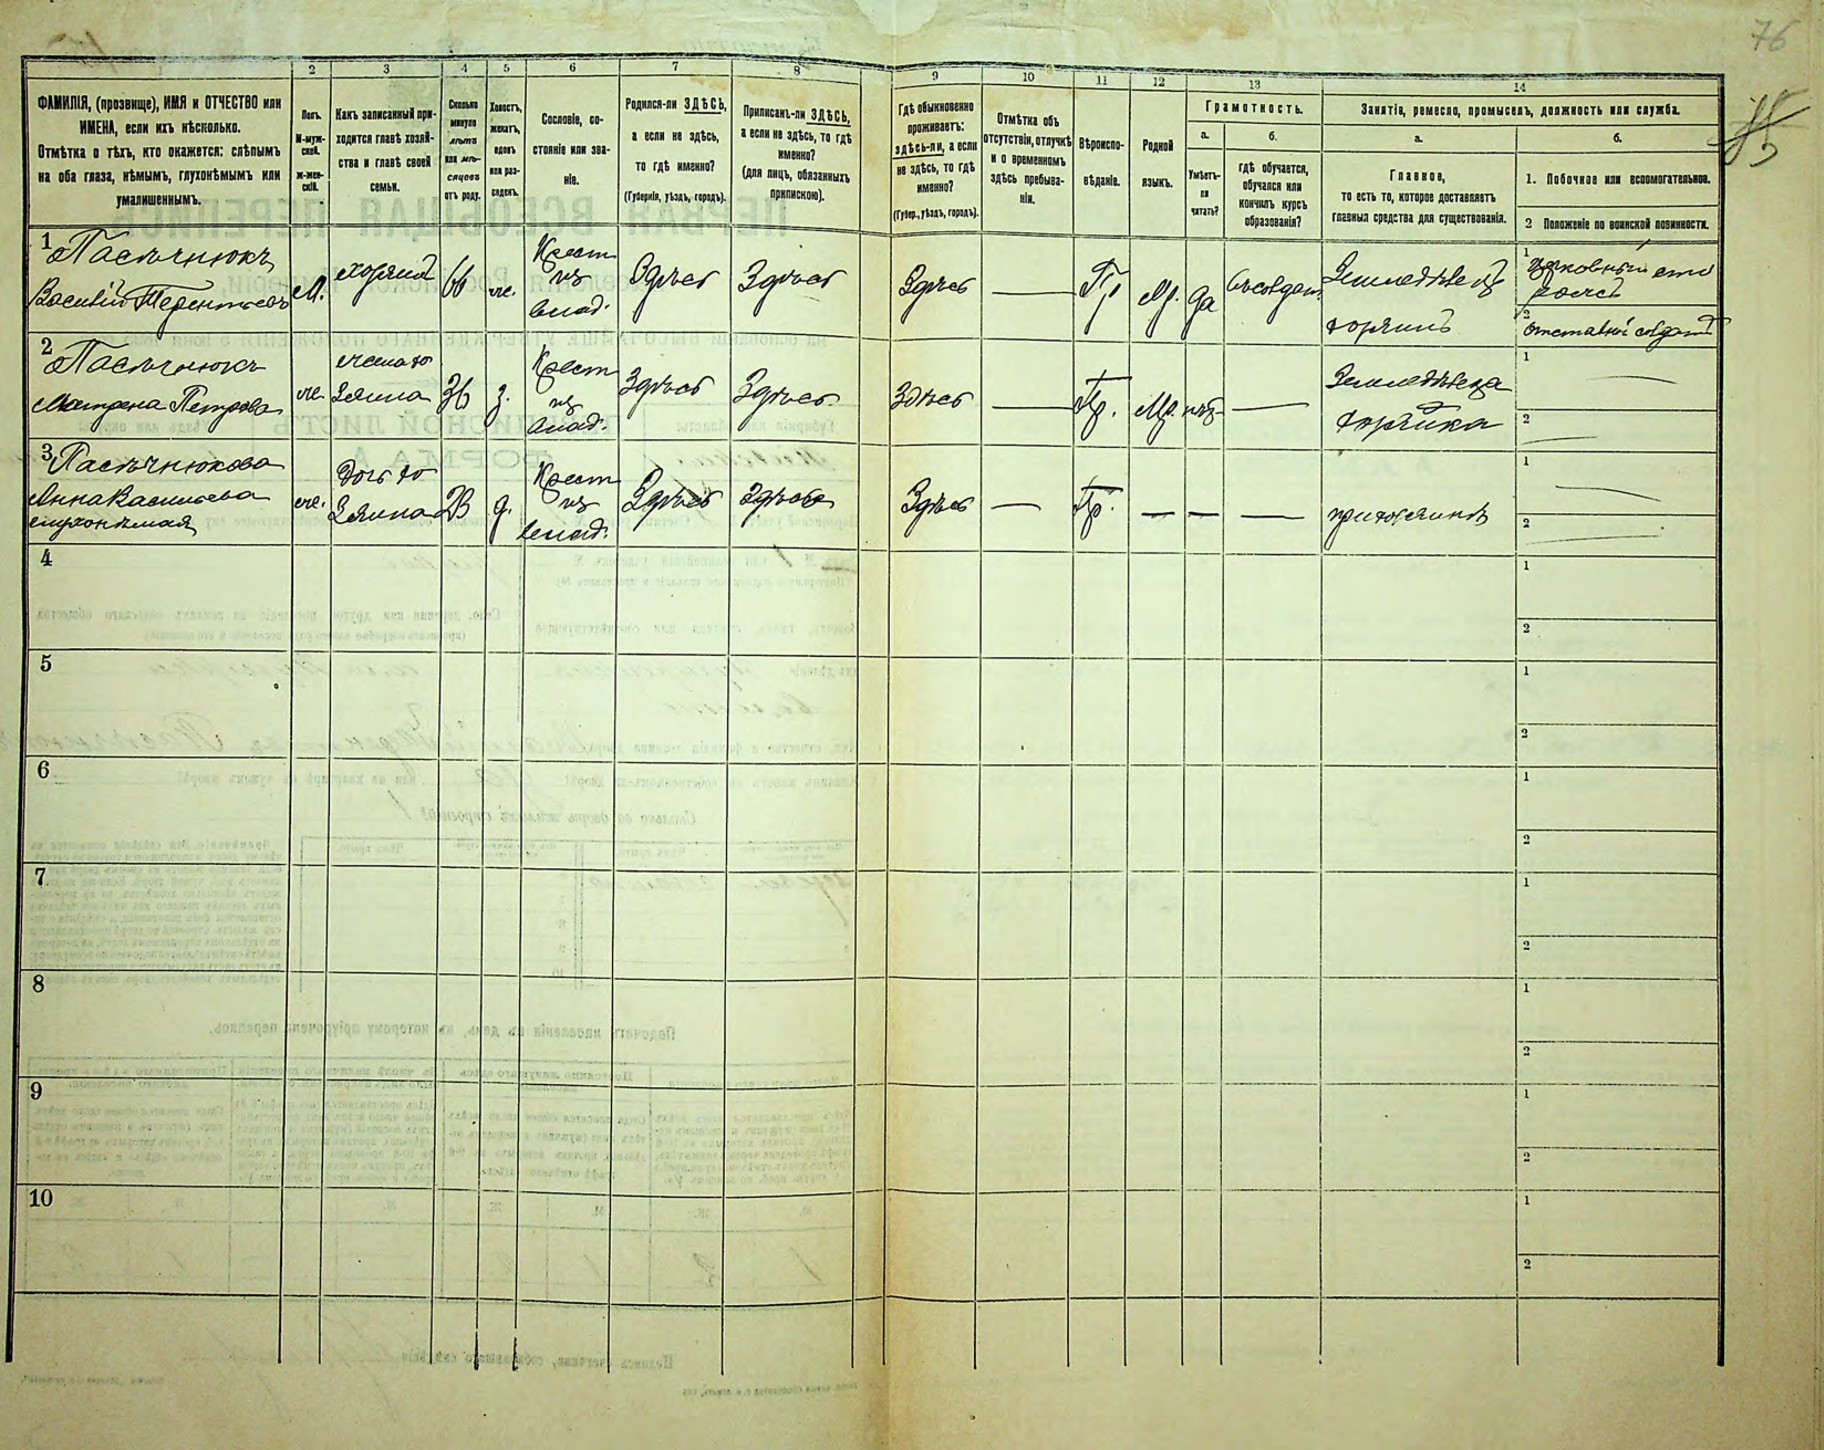 76
2 3 4 5 6 7 8 9 10 11 12 13 14
ФАМИЛІЯ, (прозвище), ИМЯ и ОТЧЕСТВО или
ИМЕНА, если ихъ нѣсколько.
Отмѣтка о тѣхъ, кто окажется: слѣпымъ
на оба глаза, нѣмымъ, глухонѣмымъ или
умалишеннымъ.
Полъ.
М-муж-
ской.
Ж-жен-
скій.
Какъ записанный при-
ходится главѣ хозяй-
ства и главѣ своей
семьи.
Сколько
минуло
лѣтъ
или мѣ-
сяцевъ
отъ роду.
Холостъ,
женатъ,
вдовъ
или раз-
веденъ.
Сословіе, со-
стояніе или зва-
ніе.
Родился-ли ЗДѢСЬ,
а если не здѣсь,
то гдѣ именно?
(Губернія, уѣздъ, городъ).
Приписанъ-ли ЗДѢСЬ,
а если не здѣсь, то гдѣ
именно?
(для лицъ, обязанныхъ
припискою).
Гдѣ обыкновенно
проживаетъ:
здѣсь-ли, а если
не здѣсь, то гдѣ
именно?
(Губер., уѣздъ, городъ).
Отмѣтка объ
отсутствіи, отлучкѣ
и о временномъ
здѣсь пребыва-
ніи.
Вѣроиспо-
вѣданіе.
Родной
языкъ.
Грамотность.
а.
б.
Умѣетъ-
ли
читать?
гдѣ обучается,
обучался или
кончилъ курсъ
образованія?
Занятія, ремесло, промыселъ, должность или служба.
а.
б.
Главное,
то есть то, которое доставляетъ
главныя средства для существованія.
1. Побочное или вспомогательное.
2 Положеніе по воинской повинности.
1 Пасѣчнюкъ
Василій Терентьевъ
М.
хозяинъ
66
же.
Крест
изъ
влад.
Здѣсь
Здѣсь
Здѣсь
Пр
Мр.
да
Земледѣлецъ
хозяинъ
1
церковный сто
рожъ
2
отставной солдатъ
2
Пасѣчнюкъ
Матрена Петрова
же.
жена хо
зяина
36
з.
Крест
изъ
влад.
Здѣсь
Здѣсь
Здѣсь
Пр.
Мр.
нѣтъ
Земледѣлица
хозяйка
1
2
3 Пасѣчнюкова
Анна Васильева
глухонѣмая
же.
дочь хо
зяина
23
д.
Крест
изъ
влад.
Здѣсь
Здѣсь
Здѣсь
Пр.
при хозяинѣ
1
2
4
1
2
5
1
2
6
1
2
7
1
2
8
1
2
9
1
2
10
1
2